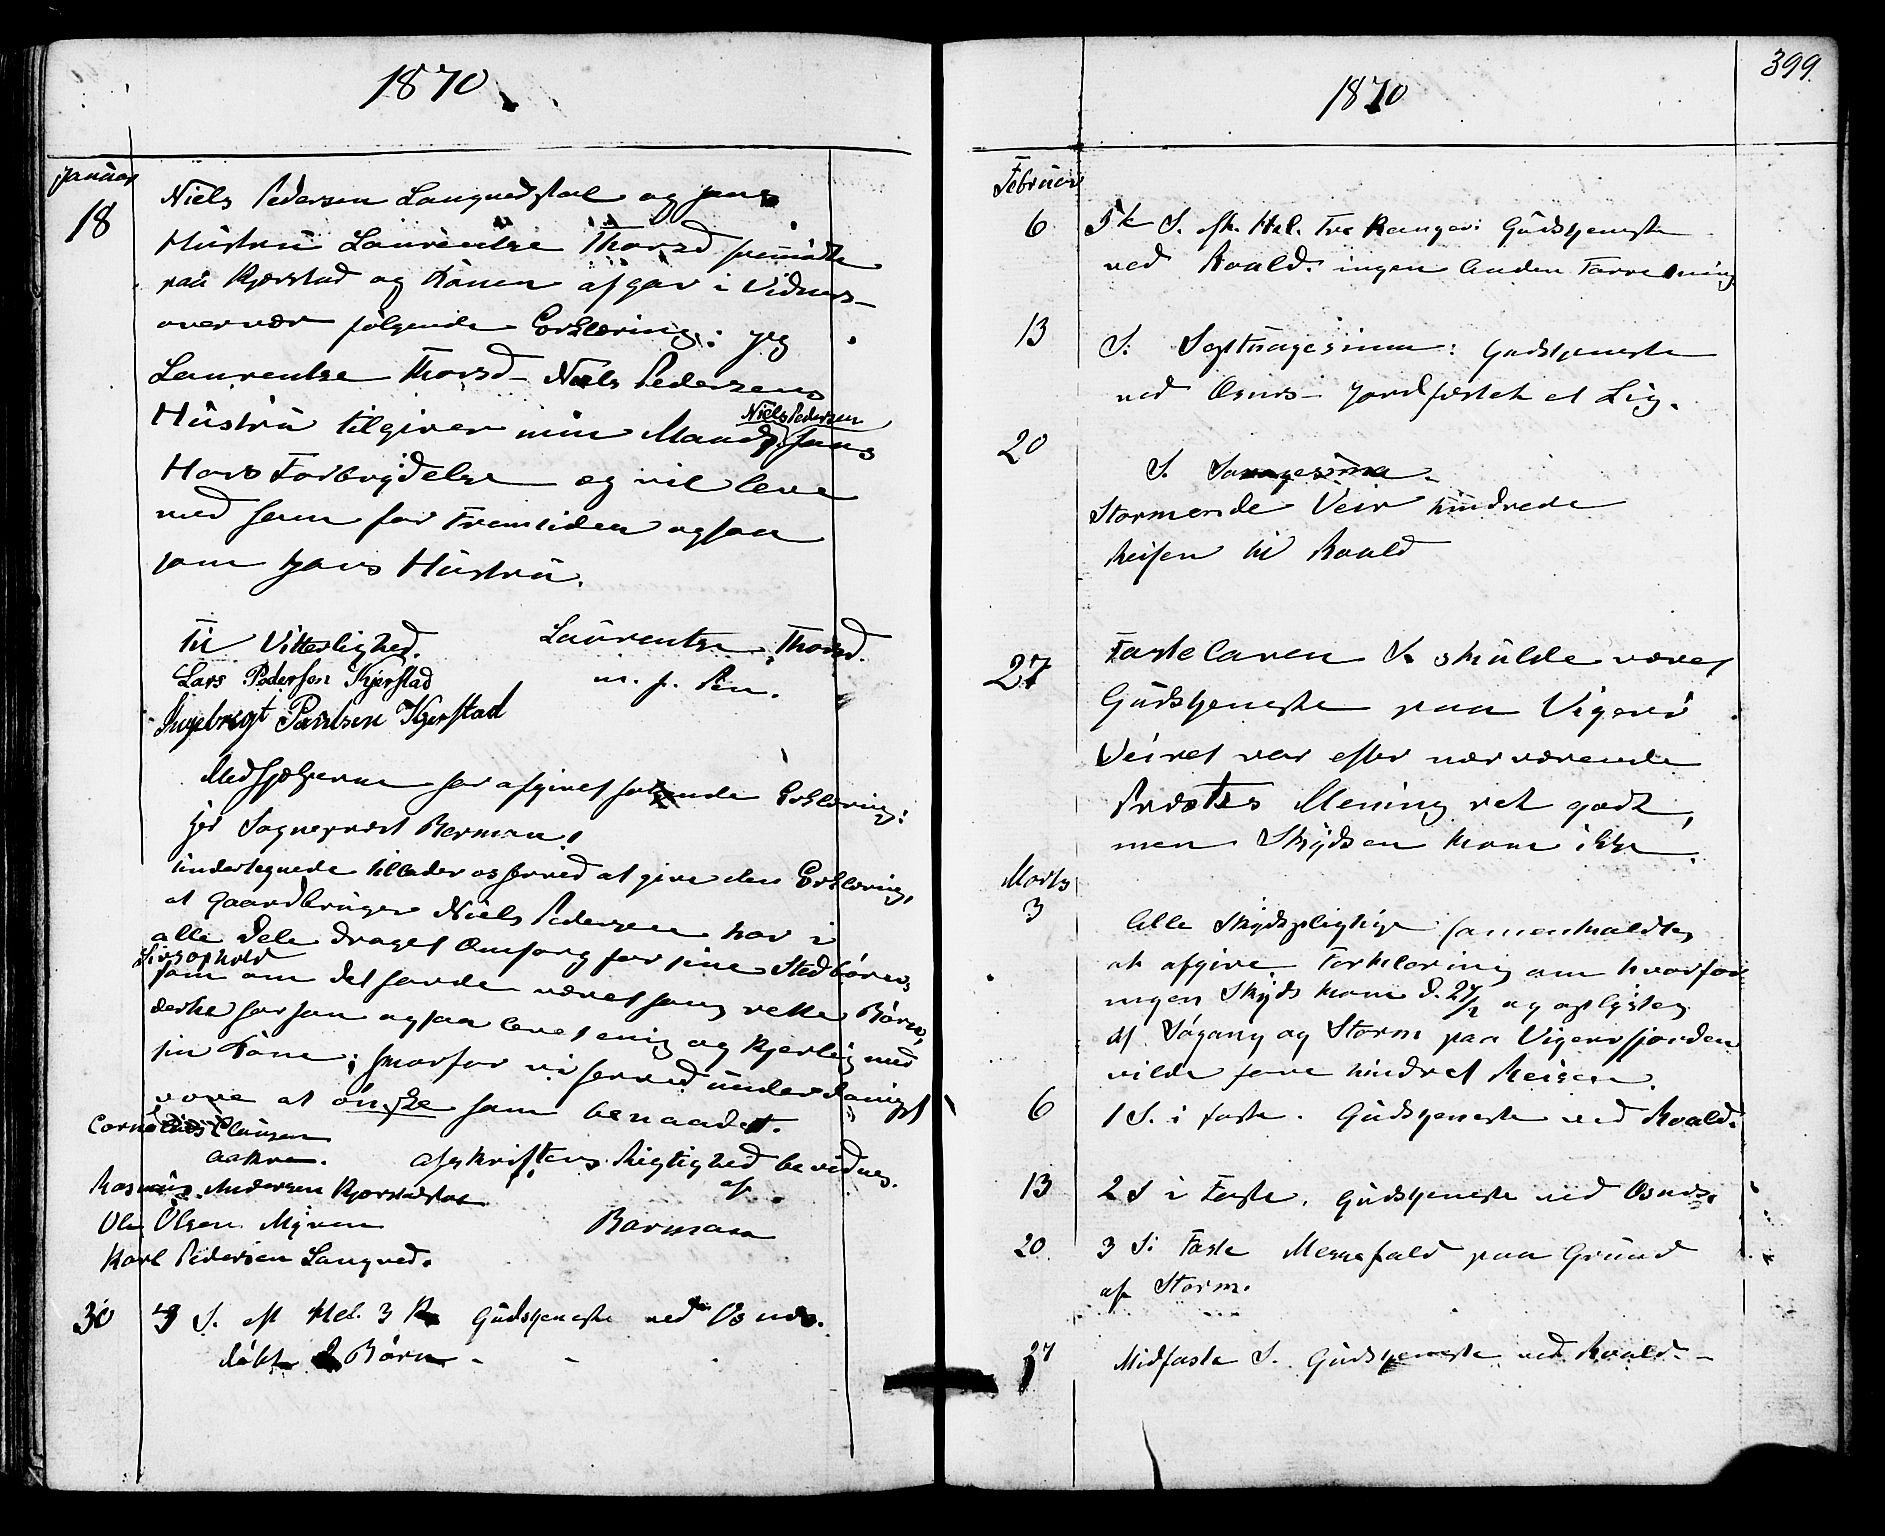 1870
Januar
18
Niels Pedersen Langnedstal og hans
Hustru Laurentse Thorsd fremødte
paa Kjerstad og Konen afgav i Vidners
overvær følgende Erklæring: Jeg
Laurentse Thorsd Niels Pedersens
Hustru tilgiver min Mand Niels Pedersen hans
Hors Forbrydelse og vil leve
med ham for Fremtiden ogsaa
som hans Hustru.
til Vitterlighed. Laurentse Thorsd.
Lars Pedersen Kjerstad m. p. Pen.
Ingebrigt Paulsen Kjerstad
Medhjelperne har afgivet følgende Erklæring:
Hr Sogneprest Barman!
Undertegnede tillader os herved at give den Erklæring,
at Gaardbruger Niels Pedersen har i
alle Dele draget Omsorg for sine Stedbørns
Livsophold
som om det havde været hans rette Børn,
derhos har han ogsaa levet enig og kjerlig med
sin Kone; hvorfor vi herved underdanigst
vove at ønske ham benaadet.
Cornelius Clausen
Aakre. Afskriftens Rigtighed bevidnes.
Rasmus Andersen Kjerstadstal af
Ole Olsen Myren Barman
Karl Pedersen Langned.
30 3 S. eft Hel. 3 K Gudstjeneste ved Osnes.
døbt 2 Børn
399
1870
Februar
6 5te S. eft. Hel. Tre Konger: Gudstjeneste
ved Roald. ingen Anden Forretning
13 S. Septuagesima: Gudstjeneste
ved Osnes jordfæstet et Lig.
20
S. Sexagesima
Stormende Veir hindrede
Reisen til Roald
27 Fastelaven S. skulde været
Gudstjeneste paa Vigerø
Veiret var efter nærværende
Præstes Mening ret godt,
men Skydsen kom ikke.
Marts
3 Alle Skydspligtige samenkaldtes
at afgive Forklaring om hvorfor
ingen Skyds kom d. 27/2 og oplystes
at Søgang og Storm paa Vigerøfjorden
vilde have hindret Reisen.
6 1 S. i faste. Gudstjeneste ved Roald.
13 2 S i Faste. Gudstjeneste ved Osnes.
20 3 S i Faste Messefald paa Grund
af Storm.
27 Midfaste S. Gudstjeneste ved Roald.